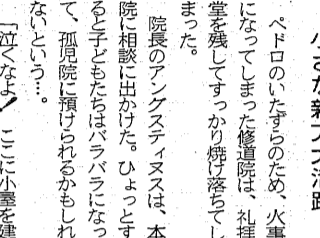 ペドロのいたずらのため、火事
になってしまった修道院は、礼拝
堂を残してすっかり焼け落ちてし
まった。
院長のアングスティヌスは、本
院に相談に出かけた。ひょっとす
ると子どもたちはバラバラになっ
て、孤児院に預けられるかもしれ
ないという…。
「泣くなよ! ここに小屋を建